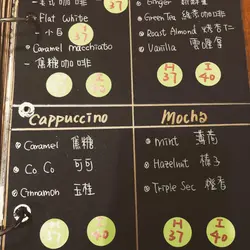 Flat White
- 小白
Caramel macchiato
- 焦糖咖啡
H 37
I 40
Ginger
Green Tea 綠茶咖啡
Roast Almond 烤杏仁
Vanilla
H 37
I 40
Cappuccino
Caramel 焦糖
CoCo 可可
Cinnamon 玉桂
H 37
I 40
Mocha
mint 薄荷
Hazelnut 榛子
Triple Sec 橙香
H 37
I 40